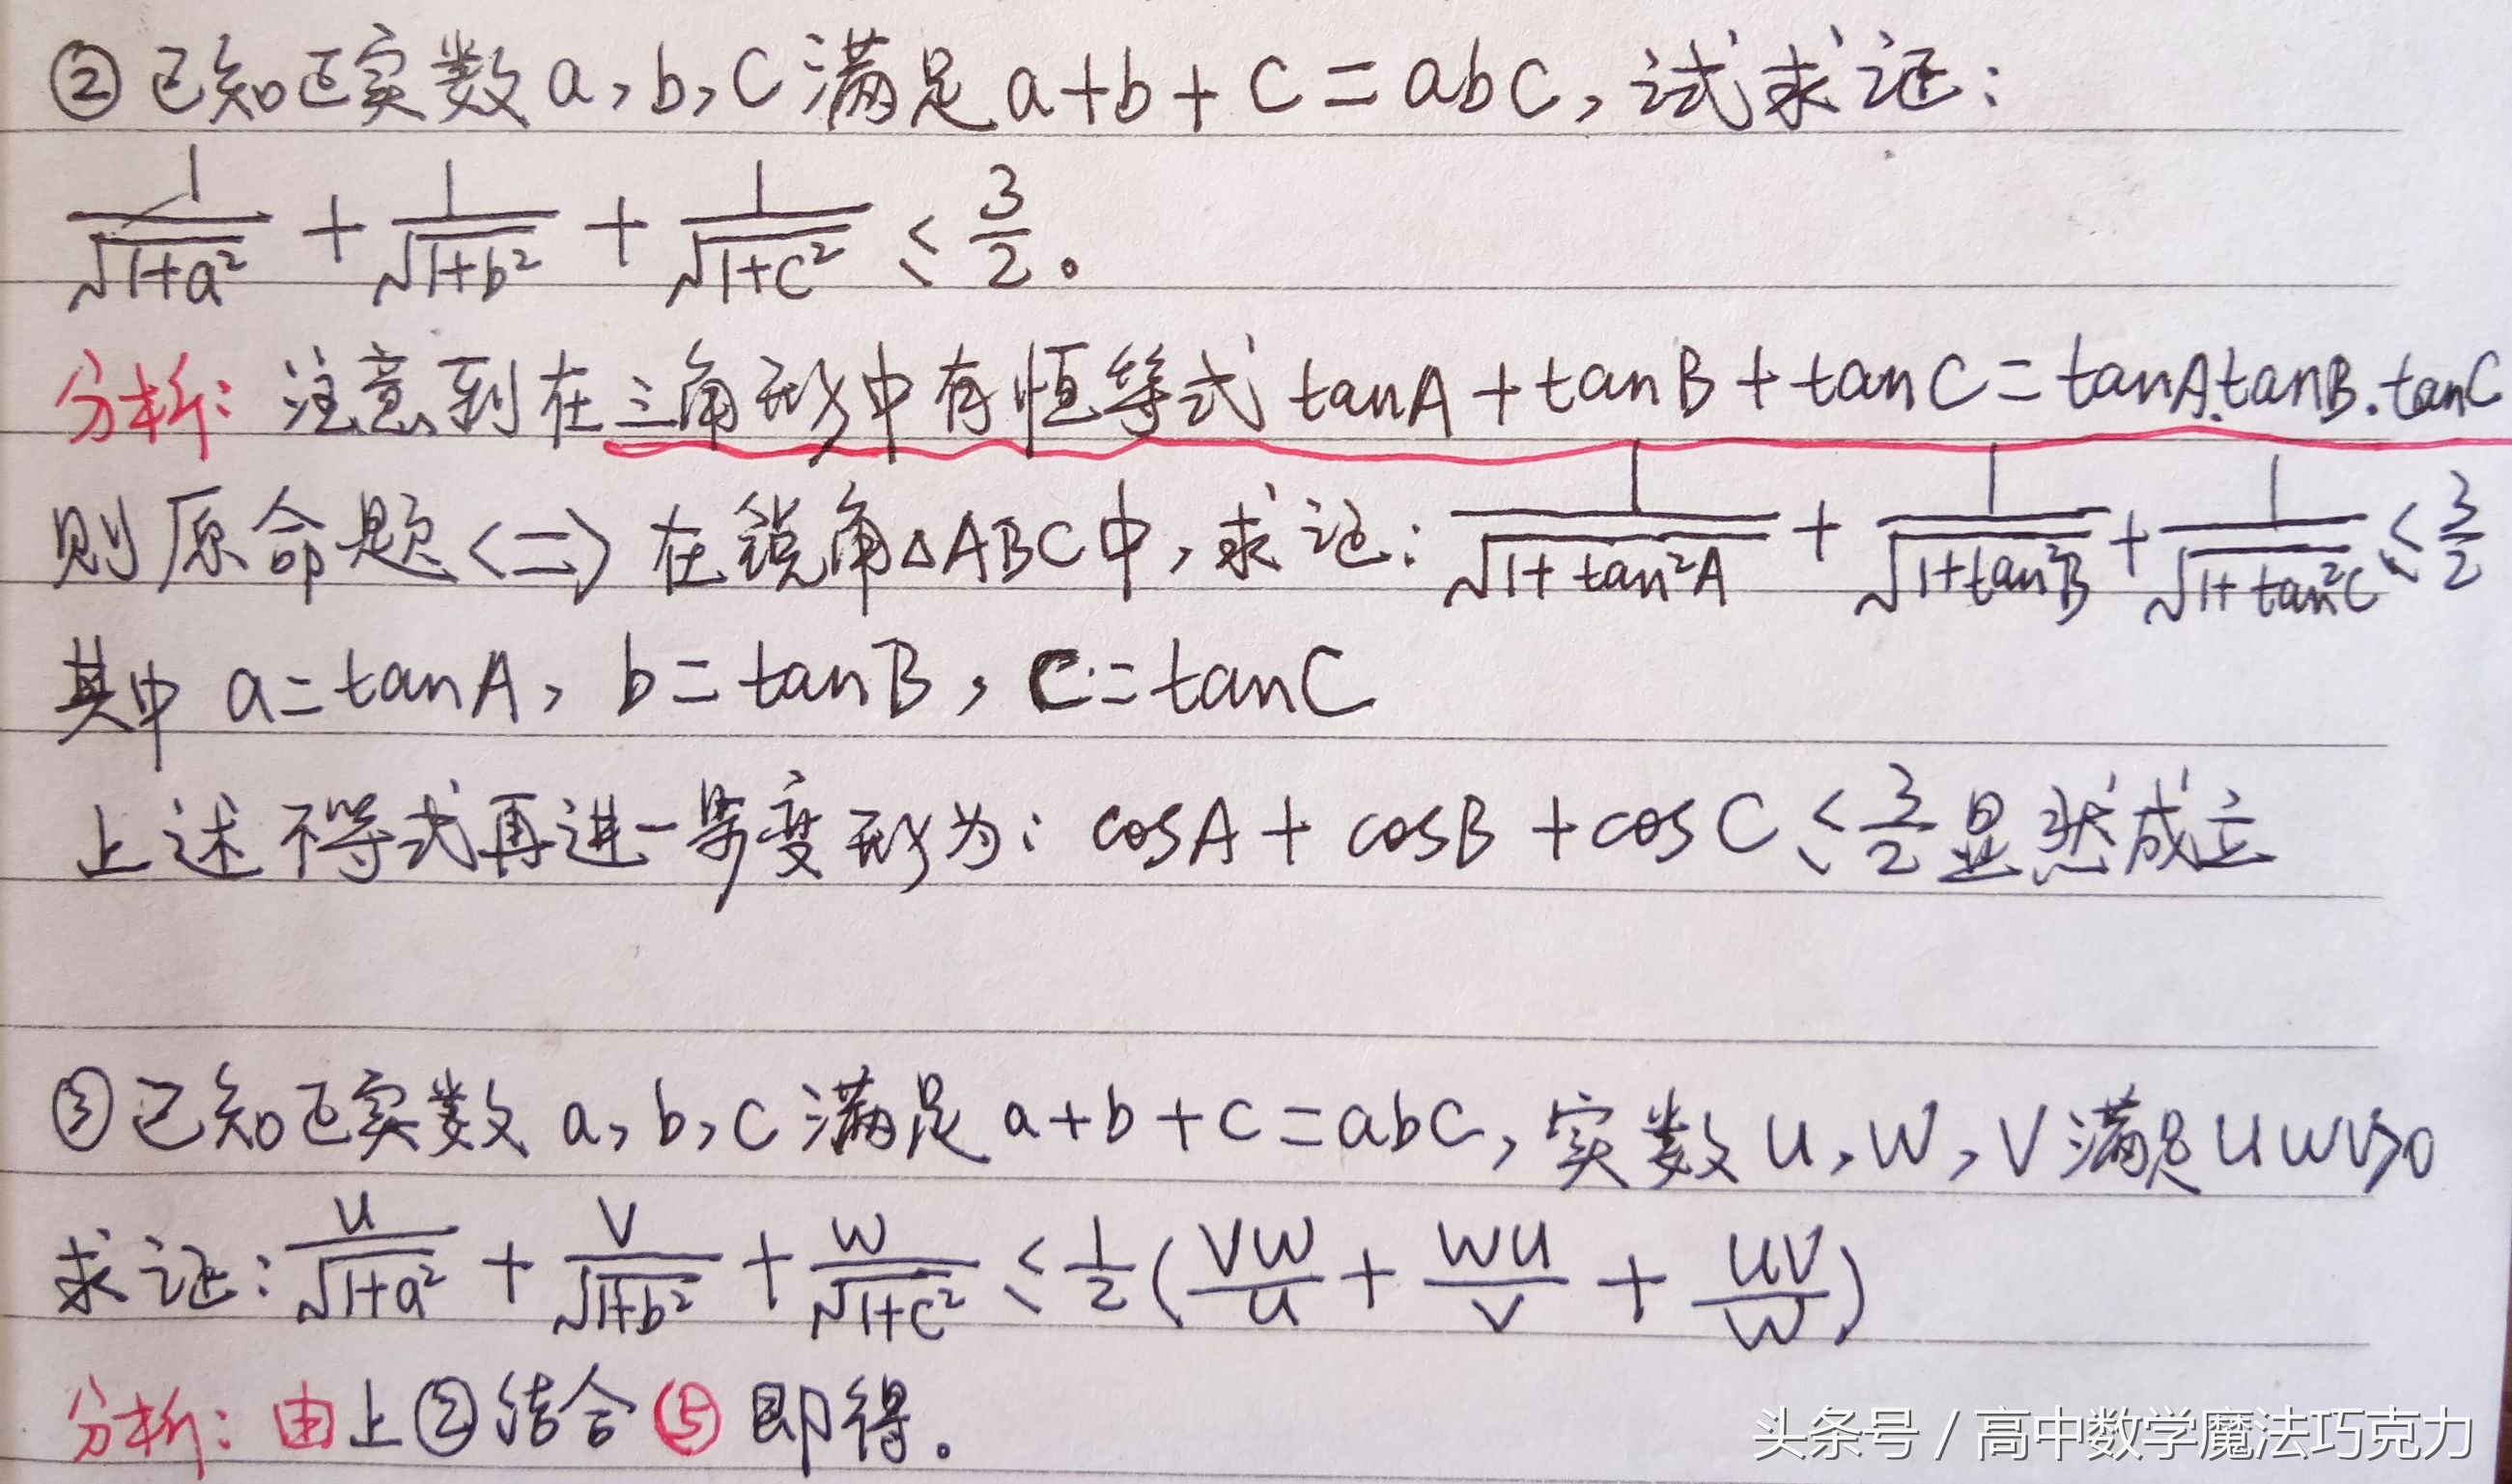 ②已知正实数a,b,c满足a+b+c=abc,试求证:
1/√(1+a²) + 1/√(1+b²) + 1/√(1+c²) ≤ 3/2。
分析: 注意到在三角形中有恒等式 tanA+tanB+tanC=tanA·tanB·tanC
则原命题<=>在锐角△ABC中,求证: 1/√(1+tan²A) + 1/√(1+tan²B) + 1/√(1+tan²C) ≤ 3/2
其中 a=tanA, b=tanB, c=tanC
上述不等式再进一步变形为: cosA+cosB+cosC ≤ 3/2 显然成立
③已知正实数a,b,c满足a+b+c=abc,实数u,w,v满足uwv>0
求证: u/√(1+a²) + v/√(1+b²) + w/√(1+c²) ≤ 1/2(vw/u + wu/v + uv/w)
分析: 由上②结合⑤即得。
头条号 / 高中数学魔法巧克力